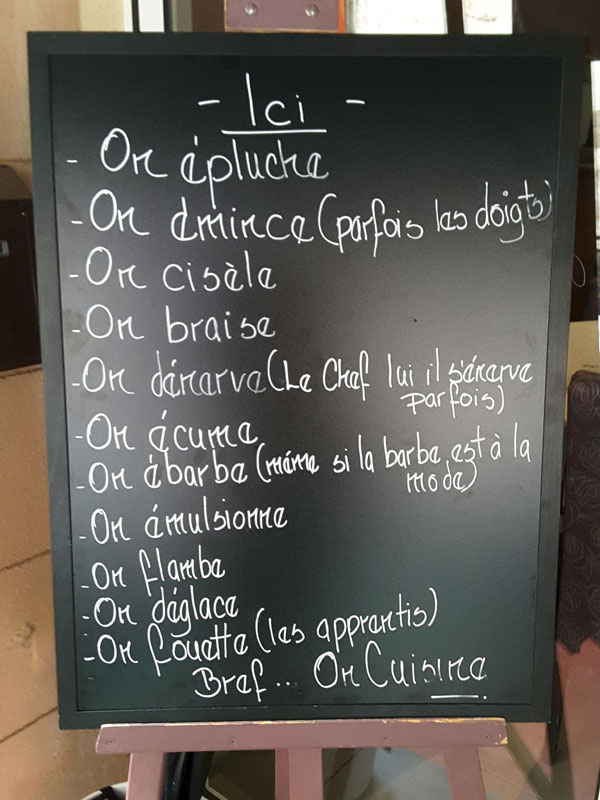 - Ici -
- On épluche
- On émince (parfois les doigts)
- On cisèle
- On braise
- On dénerve (Le Chef lui il s'énerve
parfois)
- On écume
- On ébarbe (même si la barbe est à la
mode)
- On émulsionne
- On flambe
- On déglace
- On fouette (les apprentis)
Bref... On Cuisine.